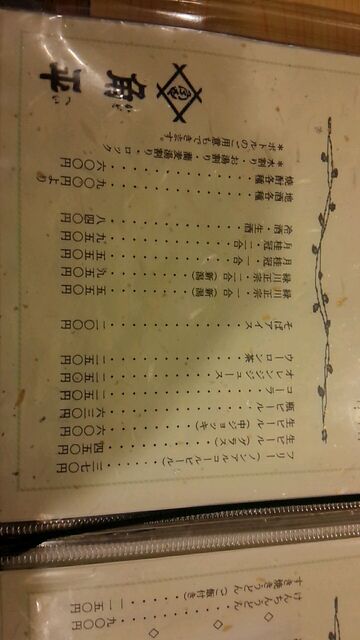 けんちんうどん 九〇〇円
すき焼きうどん(ご飯付き) 一一五〇円
フリー(ノンアルコールビール)・・・・三七〇円
生ビール(グラス)・・・・四五〇円
生ビール(中ジョッキ)・・・・六〇〇円
瓶ビール・・・・六三〇円
コーラ・・・・二五〇円
オレンジジュース・・・・二五〇円
ウーロン茶・・・・二五〇円
そばアイス・・・・二〇〇円
緑川正宗 一合(新潟)・・・・五五〇円
緑川正宗 二合(新潟)・・・・九五〇円
月桂冠 一合・・・・五五〇円
月桂冠 二合・・・・九五〇円
冷酒・生酒・・・・八四〇円
地酒各種・・・・九〇〇円より
焼酎各種・・・・六〇〇円
*水割り・お湯割り・蕎麦湯割り・ロック
*ボトルのご用意もできます。
角平